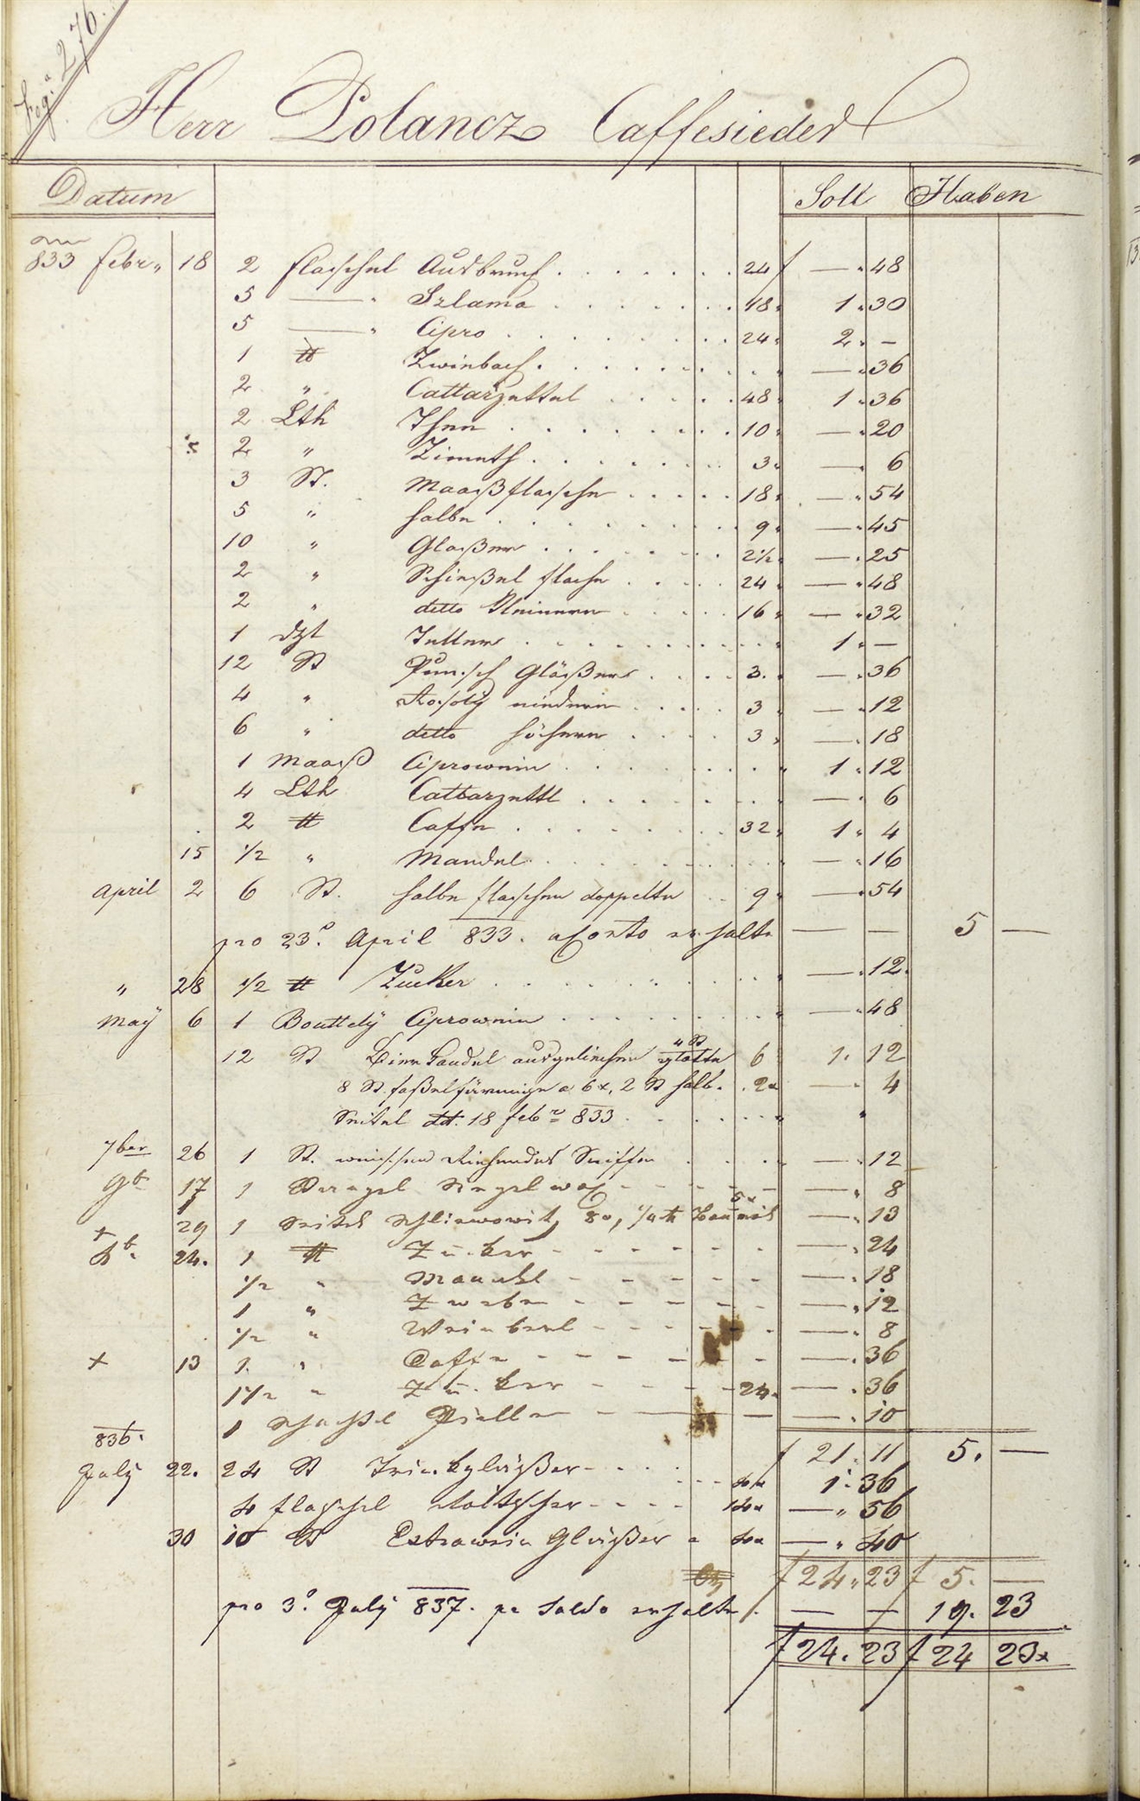 Herr Polancz Caffesieder
Datum Soll Haben
833 Febr. 18 2 Flaschel Ausbruch 24 — 48
5 — Szlama 18 1 30
5 — Cipro 24 2 —
1 ℔ Zwiebach — 36
2 " Cattarzettel 48 1 36
2 Lth Thee 10 — 20
2 " Zimmth 3 — 6
3 St. Maaßflasche 18 — 54
5 " halbe 9 — 45
10 " Glaßer 2½ — 25
2 " flache 24 — 48
2 " detto kleinere 16 — 32
1 dzt Teller 1 —
12 St Punsch Gläßer 3 — 36
4 " Rosoly niedere 3 — 12
6 " detto höhere 3 — 18
1 Maaß Ciprowein 1 12
4 Lth Cattarzettl — 6
2 ℔ Caffe 32 1 4
15 ½ " Mandel — 16
April 2 6 St. halbe flaschen doppelte 9 — 54
pro 23º April 833. aConto erhalte — — 5 —
" 28 ½ ℔ Zucker — 12
Maÿ 6 1 Bouttely Ciprowein — 48
12 St ausgeliehen 4 St glatte 6 1 12
8 St. faßelförmige a 6 x, 2 St halb. 2x — 4
Seitel dt. 18 Febr 833
7ber 26 1 St. — 12
9b 17 1 Stangel Siegelwax — 8
29 1 Seitel Schliwowitz 8x, ¼ ℔ 5x — 13
Xb 24. 1 ℔ Zucker — 24
½ " Mandel — 18
1 " Zwebe — 12
½ " Weinberl — 8
+ 13 1 " Caffe — 36
1½ " Zucker 24 — 36
1 Schachtel — 10
f 21 11 5. —
836.
July 22. 24 St Trinkgläßer 4x 1 36
4 flaschel 14x — 56
30 10 St Extrawein Gläßer a 4x — 40
f 24 23 f 5. —
pro 3º July 837. pr Saldo erhalte — — 19. 23
f 24. 23 f 24 23x